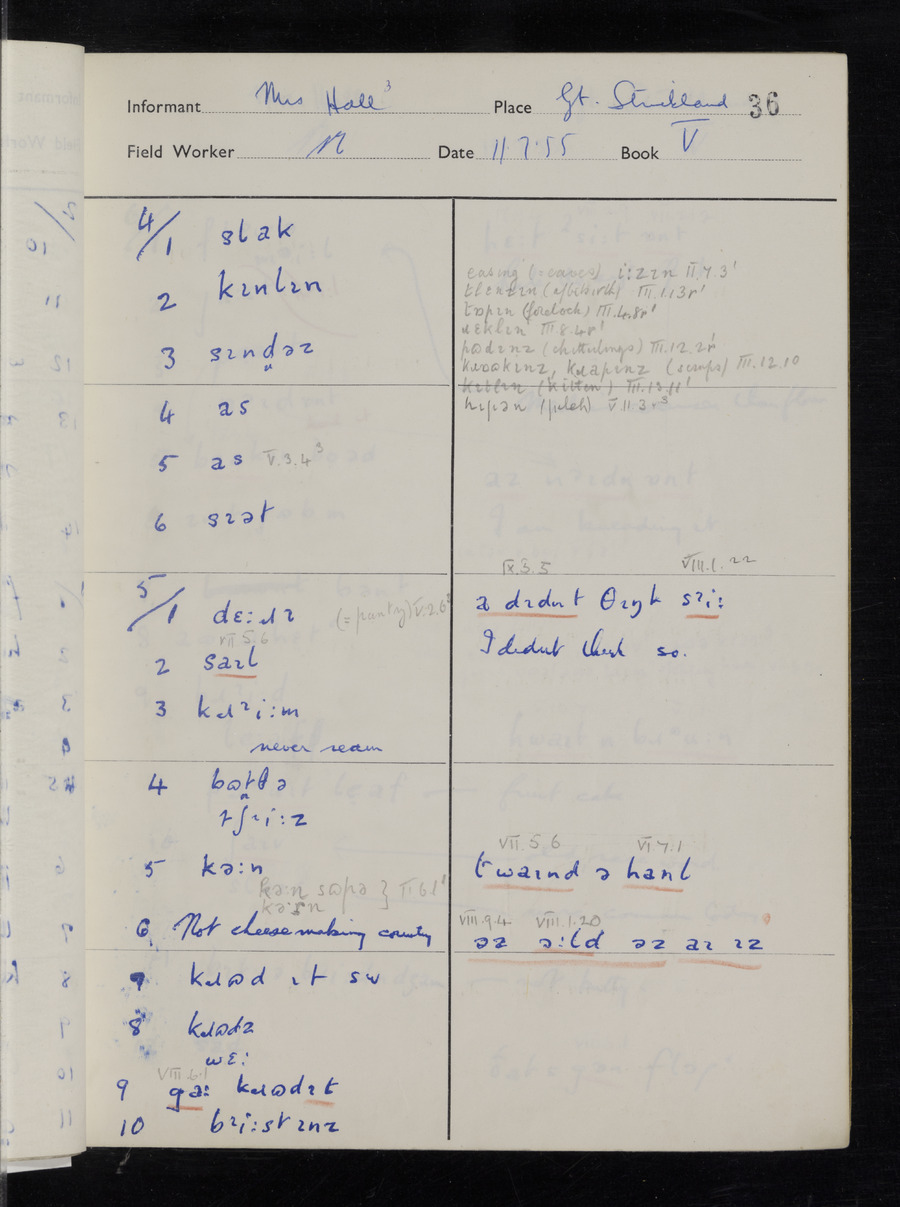 Informant Mrs Hall³ Place Gt. Strickland 36
Field Worker N Date 11.7.55 Book V
4/1 slak
2 kɪnlɪn
3 sɪndəz
4 as
5 as V.3.4³
6 sɪət
5/1 dɛ:ɹɪ (=pantry) V.2.6³
VII.5.6
2 saɪl
3 kɹᶦi:m
never ream
4 bɷtʰə
tʃᶦi:z
5 kə:n
kə:n sɷpə } II 6.1'
6 Not cheesemaking country
7 kɹɷd ɪt sɷ
8 kɹɷdz
wɛ:
VIII.6.1
9 ga: kɹɷdɪt
10 bᶦi:stɪnz
easing (=eaves) i:zɪn II.7.3'
klenzɪn (afterbirth) III.1.13r'
tɒpɪn (forelock) III.4.8r'
III.8.4r'
pɷdɪnz (chitterlings) III.12.2r'
kɹapɪnz (scraps) III.12.10
kɪtlɪn (kitten) III.13.11'
V.11.3.³
IX.3.5 VIII.1.22
a dɪdnt θɪŋk sᶦi:
I didnt think so.
VII.5.6 VI.7.1
twaɪnd ə hanl
VIII.9.4 VIII.1.20
əz ə:ld əz aɪ ɪz